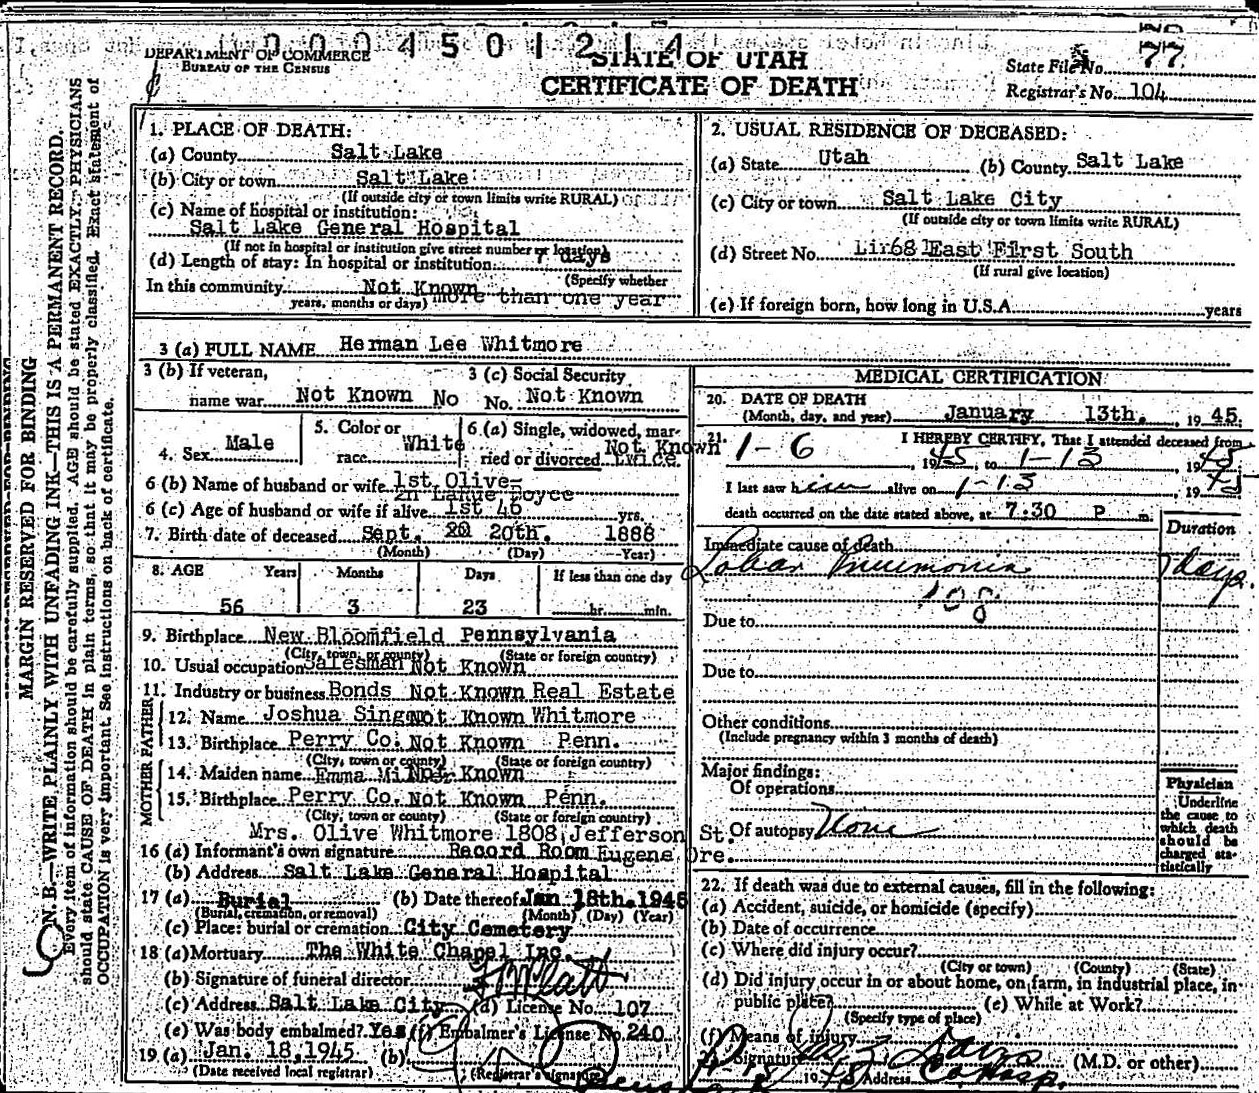 0004501214
DEPARTMENT OF COMMERCE
BUREAU OF THE CENSUS
STATE OF UTAH
CERTIFICATE OF DEATH
State File No. 77
Registrar's No. 104
MARGIN RESERVED FOR BINDING
N. B.—WRITE PLAINLY WITH UNFADING INK—THIS IS A PERMANENT RECORD.
Every item of information should be carefully supplied. AGE should be stated EXACTLY. PHYSICIANS
should state CAUSE OF DEATH in plain terms, so that it may be properly classified. Exact statement of
OCCUPATION is very important. See instructions on back of certificate.
1. PLACE OF DEATH:
(a) County Salt Lake
(b) City or town Salt Lake
(If outside city or town limits write RURAL)
(c) Name of hospital or institution:
Salt Lake General Hospital
(If not in hospital or institution give street number or location)
(d) Length of stay: In hospital or institution 7 days
(Specify whether
In this community Not Known
years, months or days) more than one year
2. USUAL RESIDENCE OF DECEASED:
(a) State Utah (b) County Salt Lake
(c) City or town Salt Lake City
(If outside city or town limits write RURAL)
(d) Street No. 68 East First South
(If rural give location)
(e) If foreign born, how long in U.S.A. years
3 (a) FULL NAME Herman Lee Whitmore
3 (b) If veteran,
name war Not Known No
3 (c) Social Security
No. Not Known
4. Sex Male
5. Color or
race White
6 (a) Single, widowed, mar-
ried or divorced Not Known twice
6 (b) Name of husband or wife 1st Olive-
2n LaRue Joyce
6 (c) Age of husband or wife if alive 1st 46 yrs.
7. Birth date of deceased Sept. 20 20th. 1888
(Month) (Day) Year)
8. AGE Years Months Days If less than one day
56 3 23 hr. min.
9. Birthplace New Bloomfield Pennsylvania
(City, town, or county) (State or foreign country)
10. Usual occupation Salesman Not Known
11. Industry or business Bonds Not Known Real Estate
FATHER
12. Name Joshua Not Known Whitmore
13. Birthplace Perry Co. Not Known Penn.
(City, town or county) (State or foreign country)
MOTHER
14. Maiden name Emma Not Known
15. Birthplace Perry Co. Not Known Penn.
(City, town or county) (State or foreign country)
Mrs. Olive Whitmore 1808 Jefferson St.
16 (a) Informant's own signature Record Room Eugene Ore.
(b) Address Salt Lake General Hospital
17 (a) Burial (b) Date thereof Jan 18th. 1945
(Burial, cremation, or removal) (Month) (Day) (Year)
(c) Place: burial or cremation City Cemetery
18 (a) Mortuary The White Chapel Inc.
(b) Signature of funeral director
(c) Address Salt Lake City (d) License No. 107
(e) Was body embalmed? Yes (f) Embalmer's License No. 240
19 (a) Jan. 18,1945 (b)
(Date received local registrar) (Registrar's signature)
MEDICAL CERTIFICATION
20. DATE OF DEATH
(Month, day, and year) January 13th. , 19 45.
21. I HEREBY CERTIFY, That I attended deceased from
1-6 , 1945, to 1-13 , 1945
I last saw him alive on 1-13 , 1945
death occurred on the date stated above, at 7:30 P m.
Duration
Immediate cause of death
Lobar Pneumonia 7 days.
108
Due to
Due to
Other conditions
(Include pregnancy within 3 months of death)
Major findings:
Of operations
Of autopsy None
Physician
Underline
the cause to
which death
should be
charged sta-
tistically
22. If death was due to external causes, fill in the following:
(a) Accident, suicide, or homicide (specify)
(b) Date of occurrence
(c) Where did injury occur?
(City or town) (County) (State)
(d) Did injury occur in or about home, on farm, in industrial place, in
public place? (e) While at Work?
(Specify type of place)
(f) Means of injury
Signature (M.D. or other)
Address Co Hosp.